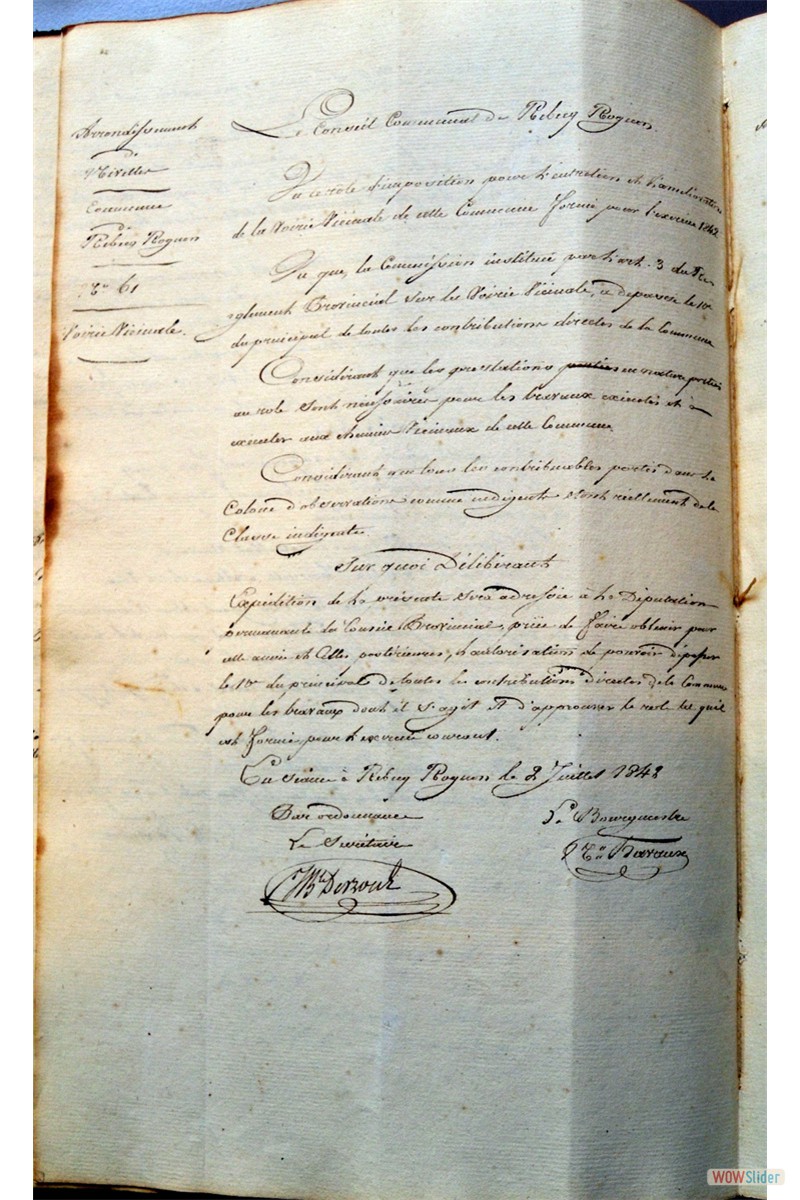 Arrondissement
de
Nivelles
Commune
de
Rebecq Rognon
N° 61
Voirie Vicinale.
Le Conseil Communal de Rebecq Rognon
Vu le role d'imposition pour l'entretien et l'amélioration
de la Voirie Vicinale de cette Commune formé pour l'exercice 1842
Vu que, la Commission instituée par l'art. 3 du Re
glement Provincial sur la Voirie Vicinale, a dépassé le 10e
du principal de toutes les contributions directes de la Commune
Considérant que les prestations portées en nature portées
au role sont nécessaires pour les travaux exécutés et à
exécuter aux chemins Vicinaux de cette Commune
Considérant que tous les contribuables portés dans la
Colone d'observations comme indigents sont réellement de la
Classe indigente.
Sur quoi Délibérant
Expédition de la présente sera adressée à la Députation
permanente du Conseil Provincial, priée de faire obtenir pour
cette année et Celles postérieures, l'autorisation de pouvoir dépasser
le 10e du principal de toutes les contributions directes de la Commune
pour les travaux dont il s'agit et d'approuver le role tel qu'il
est formé pour l'exercice courant.
En séance à Rebecq Rognon le 2 Juillet 1842
Par ordonnance
Le Bourgmestre
Le Secrétaire
WOWSlider